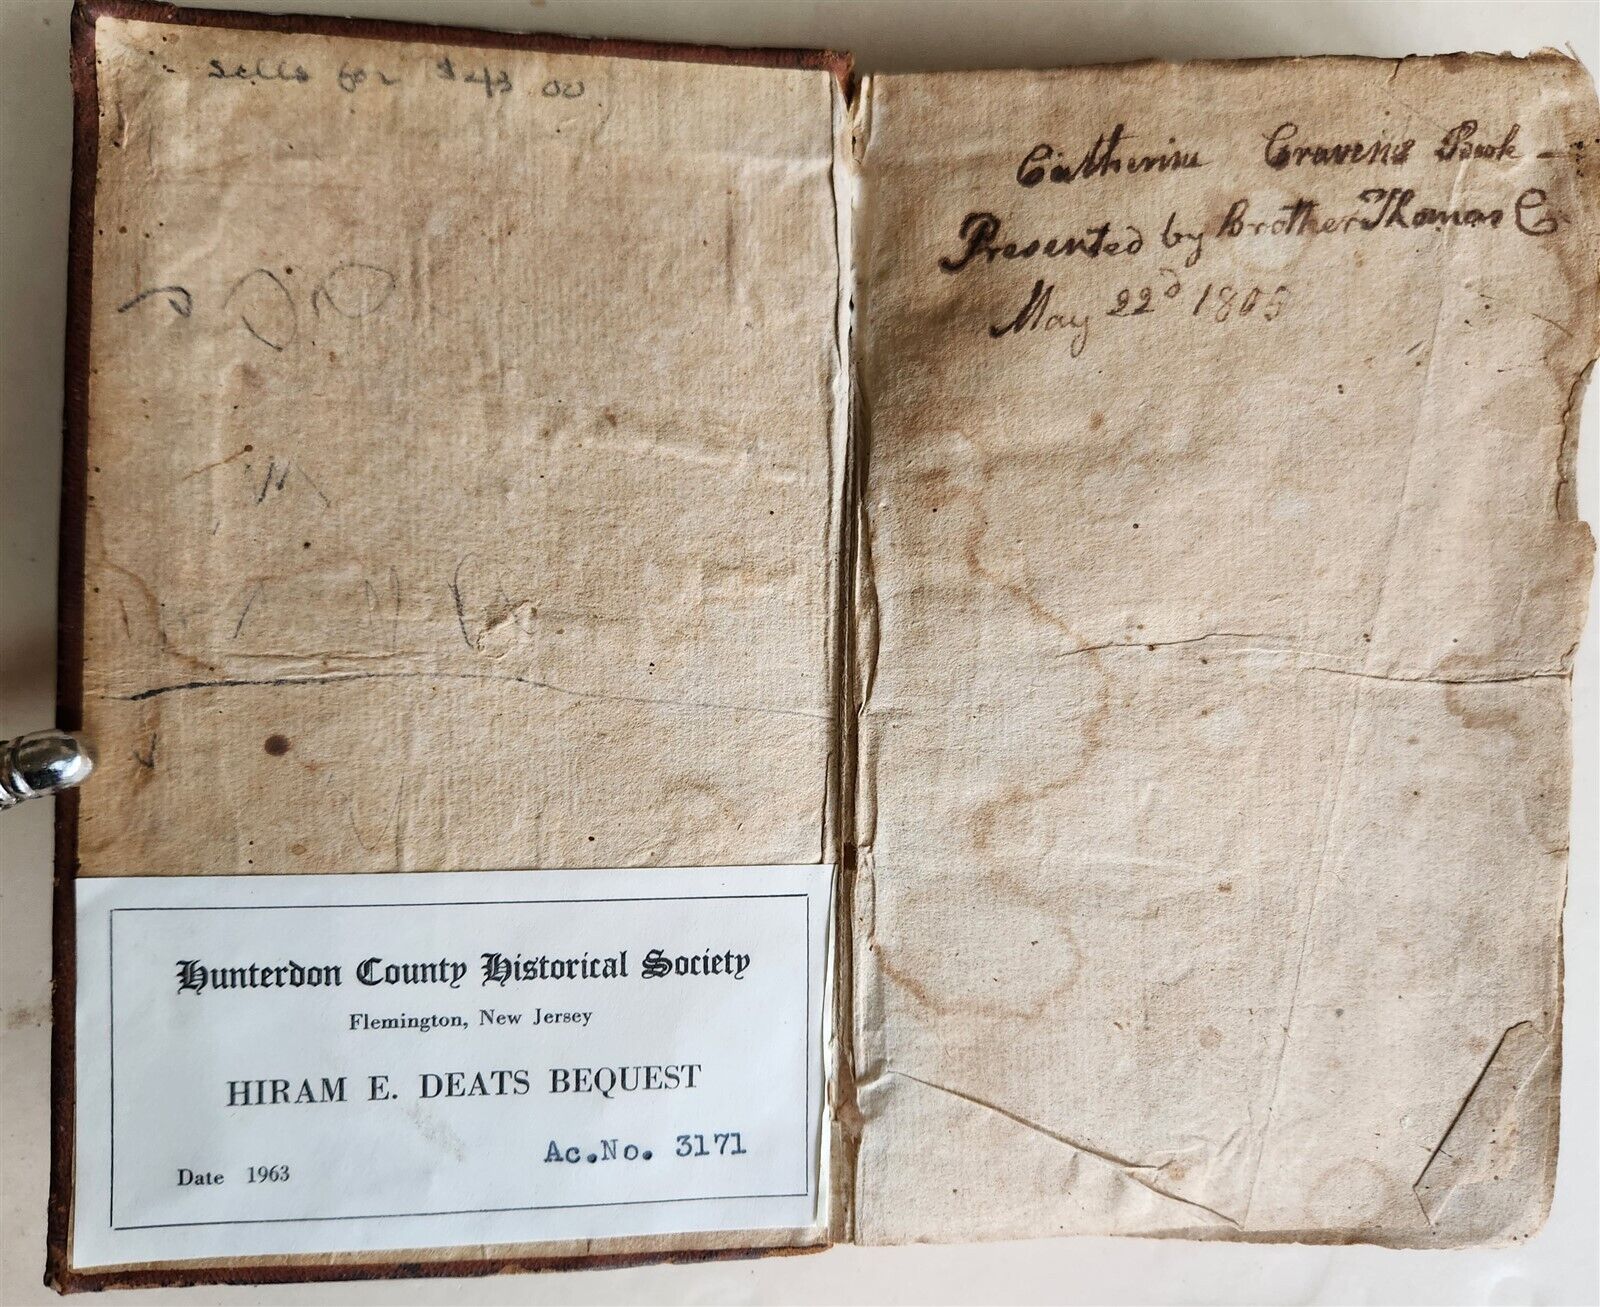 sells for $43 00
Hunterdon County Historical Society
Flemington, New Jersey
HIRAM E. DEATS BEQUEST
Ac.No. 3171
Date 1963
Catherine Cravens Book —
Presented by Brother Thomas C
May 22d 1805